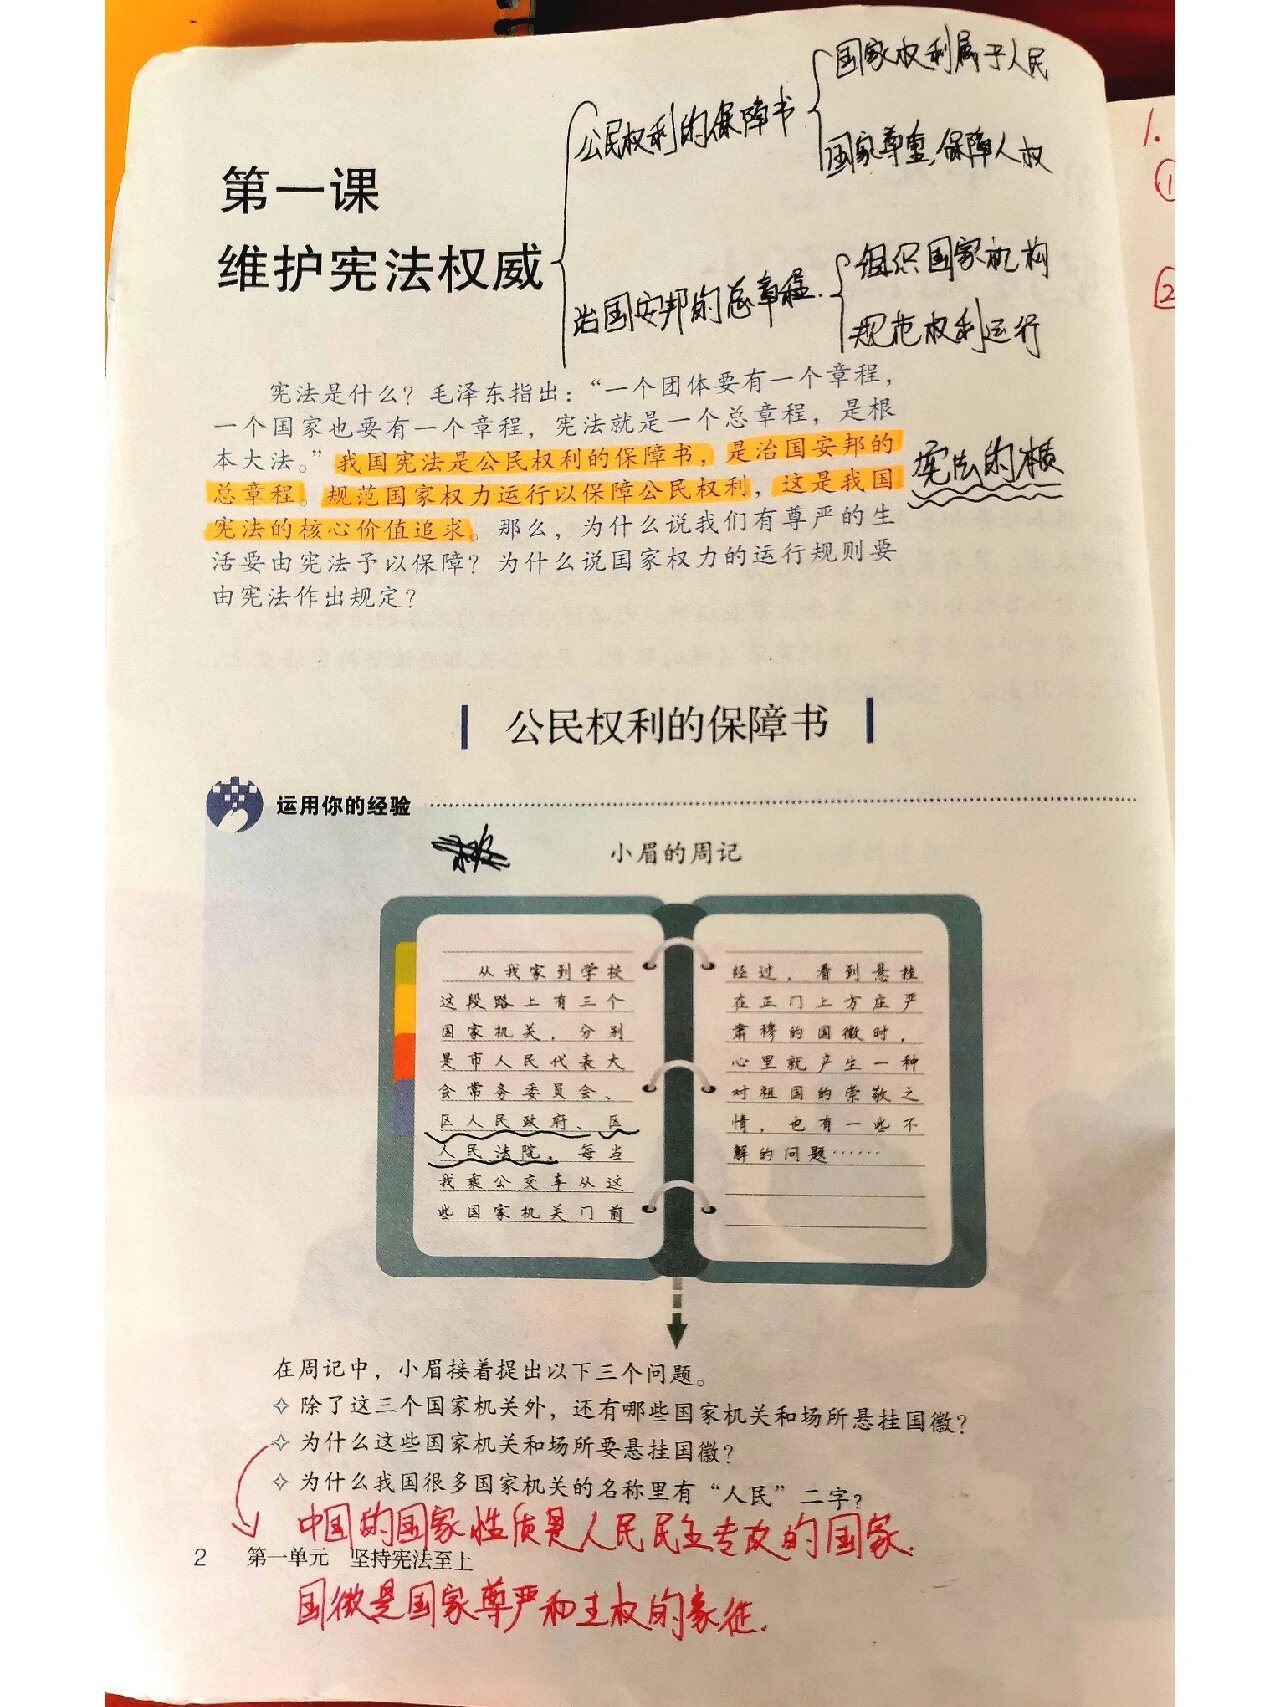 国家权利属于人民
公民权利的保障书
国家尊重,保障人权
第一课
维护宪法权威
组织国家机构
治国安邦的总章程.
规范权利运行
1.
①
②
宪法是什么？毛泽东指出：“一个团体要有一个章程，
一个国家也要有一个章程，宪法就是一个总章程，是根
本大法。”我国宪法是公民权利的保障书，是治国安邦的
总章程。规范国家权力运行以保障公民权利，这是我国
宪法的核心价值追求。那么，为什么说我们有尊严的生
活要由宪法予以保障？为什么说国家权力的运行规则要
由宪法作出规定？
宪法的核
公民权利的保障书
运用你的经验
小眉的周记
从我家到学校
这段路上有三个
国家机关，分别
是市人民代表大
会常务委员会、
区人民政府、区
人民法院。每当
我乘公交车从这
些国家机关门前
经过，看到悬挂
在正门上方庄严
肃穆的国徽时，
心里就产生一种
对祖国的崇敬之
情，也有一些不
解的问题……
在周记中，小眉接着提出以下三个问题。
✧ 除了这三个国家机关外，还有哪些国家机关和场所悬挂国徽？
✧ 为什么这些国家机关和场所要悬挂国徽？
✧ 为什么我国很多国家机关的名称里有“人民”二字？
中国的国家性质是人民民主专政的国家.
2 第一单元 坚持宪法至上
国徽是国家尊严和主权的象征.